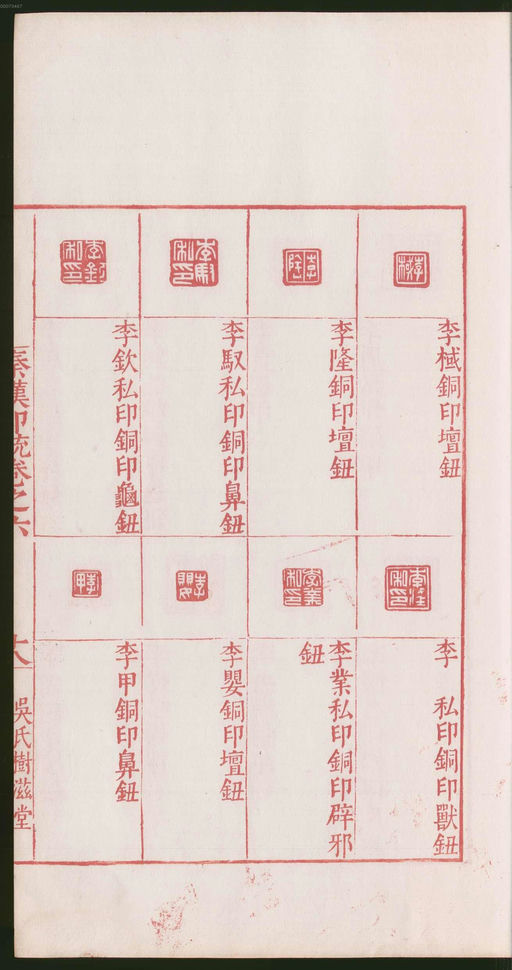 李棫銅印壇鈕
李隆銅印壇鈕
李馭私印銅印鼻鈕
李欽私印銅印龜鈕
李　私印銅印獸鈕
李業私印銅印辟邪
鈕
李嬰銅印壇鈕
李甲銅印鼻鈕
秦漢印統卷之六
吳氏樹滋堂
00073467